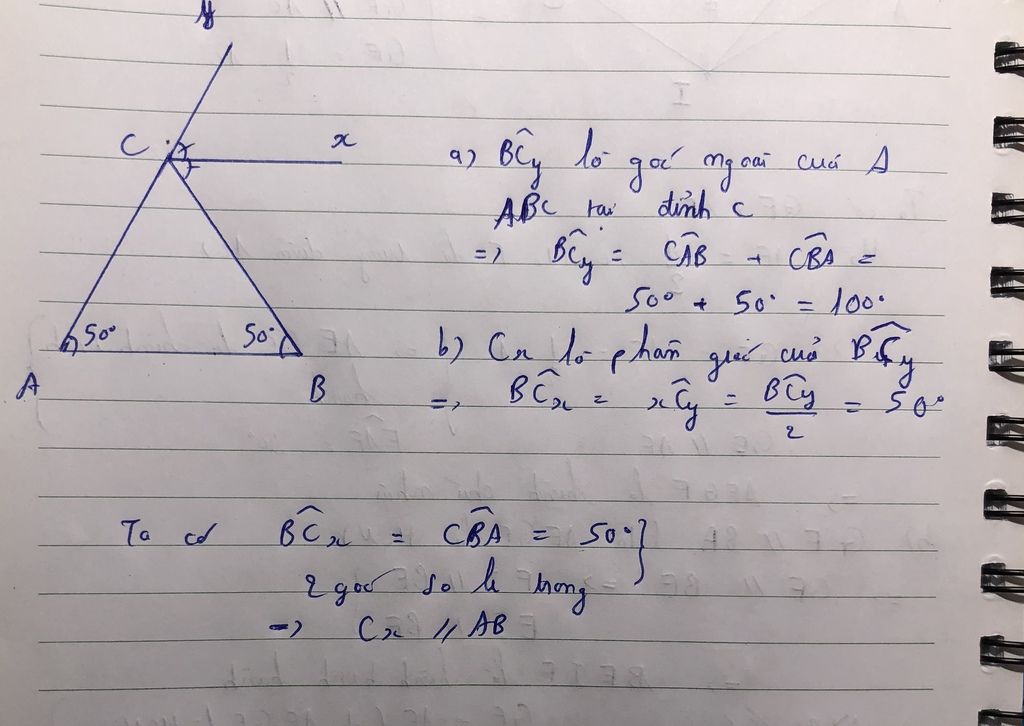 y
C x
50° 50°
A B
a) BĈy là góc ngoài của Δ
ABC tại đỉnh C
=> BĈy = CÂB + CB̂A =
50° + 50° = 100°
b) Cx là phân giác của BĈy
=> BĈx = xĈy = BĈy/2 = 50°
Ta có BĈx = CB̂A = 50° }
2 góc so le trong
=> Cx // AB